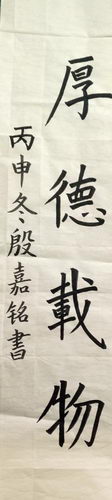 厚德載物
丙申冬殷嘉铭書